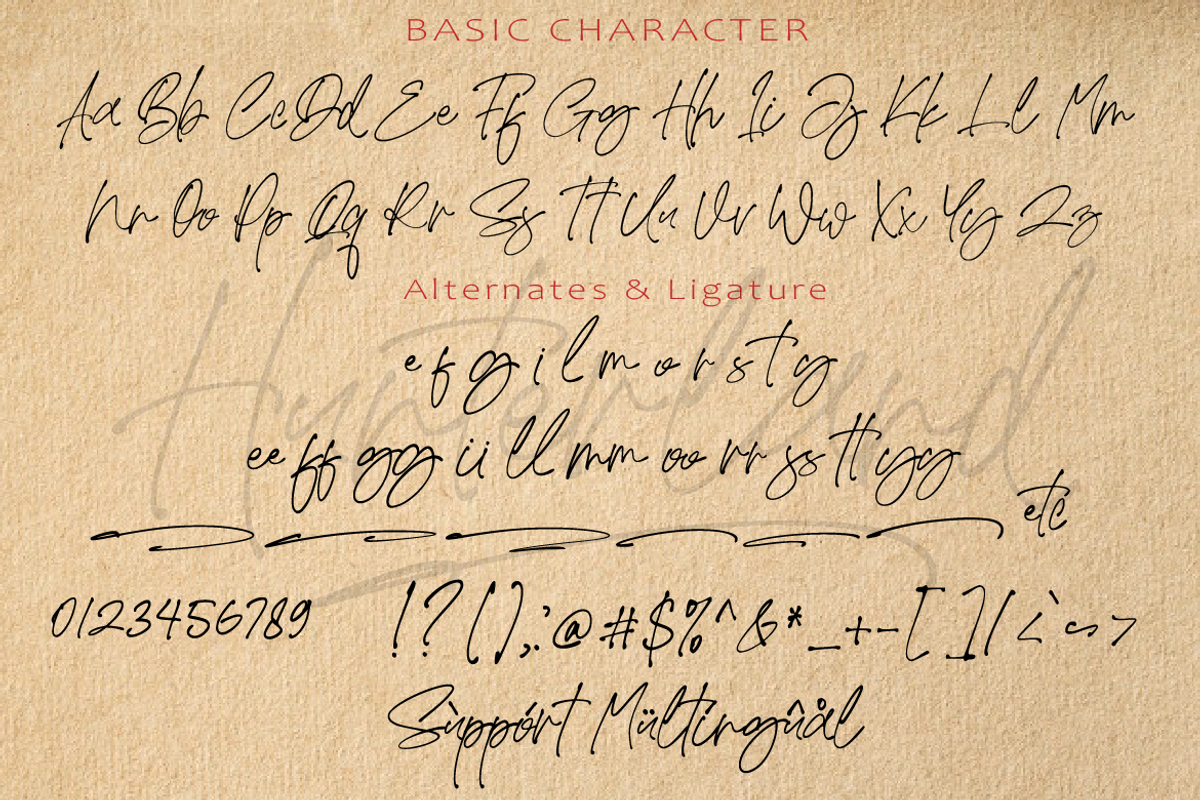 BASIC CHARACTER
Aa Bb Cc Dd Ee Ff Gg Hh Ii Jj Kk Ll Mm
Nn Oo Pp Qq Rr Ss Tt Uu Vv Ww Xx Yy Zz
Hunterland
Alternates & Ligature
e f g i l m o r s t y
ee ff gg ii ll mm oo rr ss tt yy
etc
0123456789
!?(),;:'@#$%^&*_+-[]/<`~>
Sùppórt Mültingûål